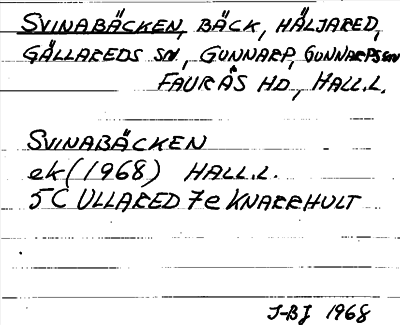 SVINABÄCKEN, BÄCK, HÄLJARED,
GÄLLAREDS SN, GUNNARP, GUNNARPS SN
FAURÅS HD, HALL.L.
SVINABÄCKEN
ek (1968) HALL.L.
5C ULLARED 7e KNARRHULT
J-BJ 1968